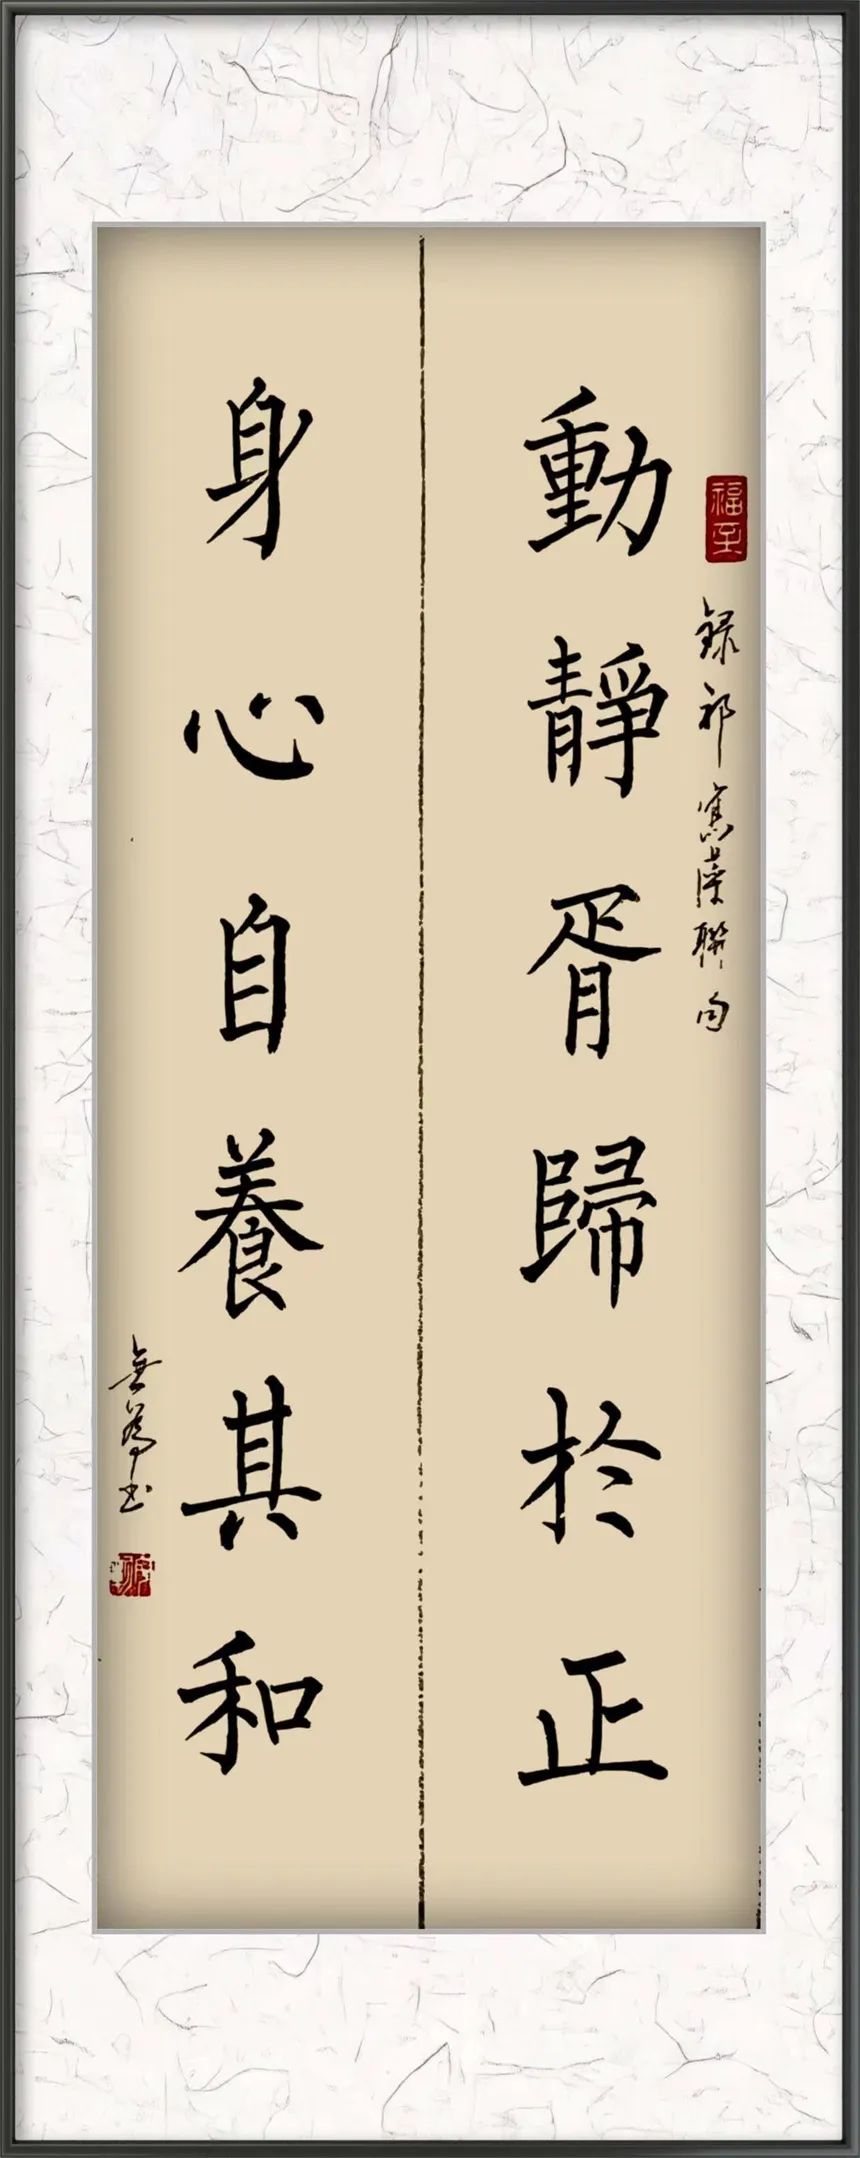 福至
錄祁寯藻聯句
動靜胥歸於正
身心自養其和
無為书